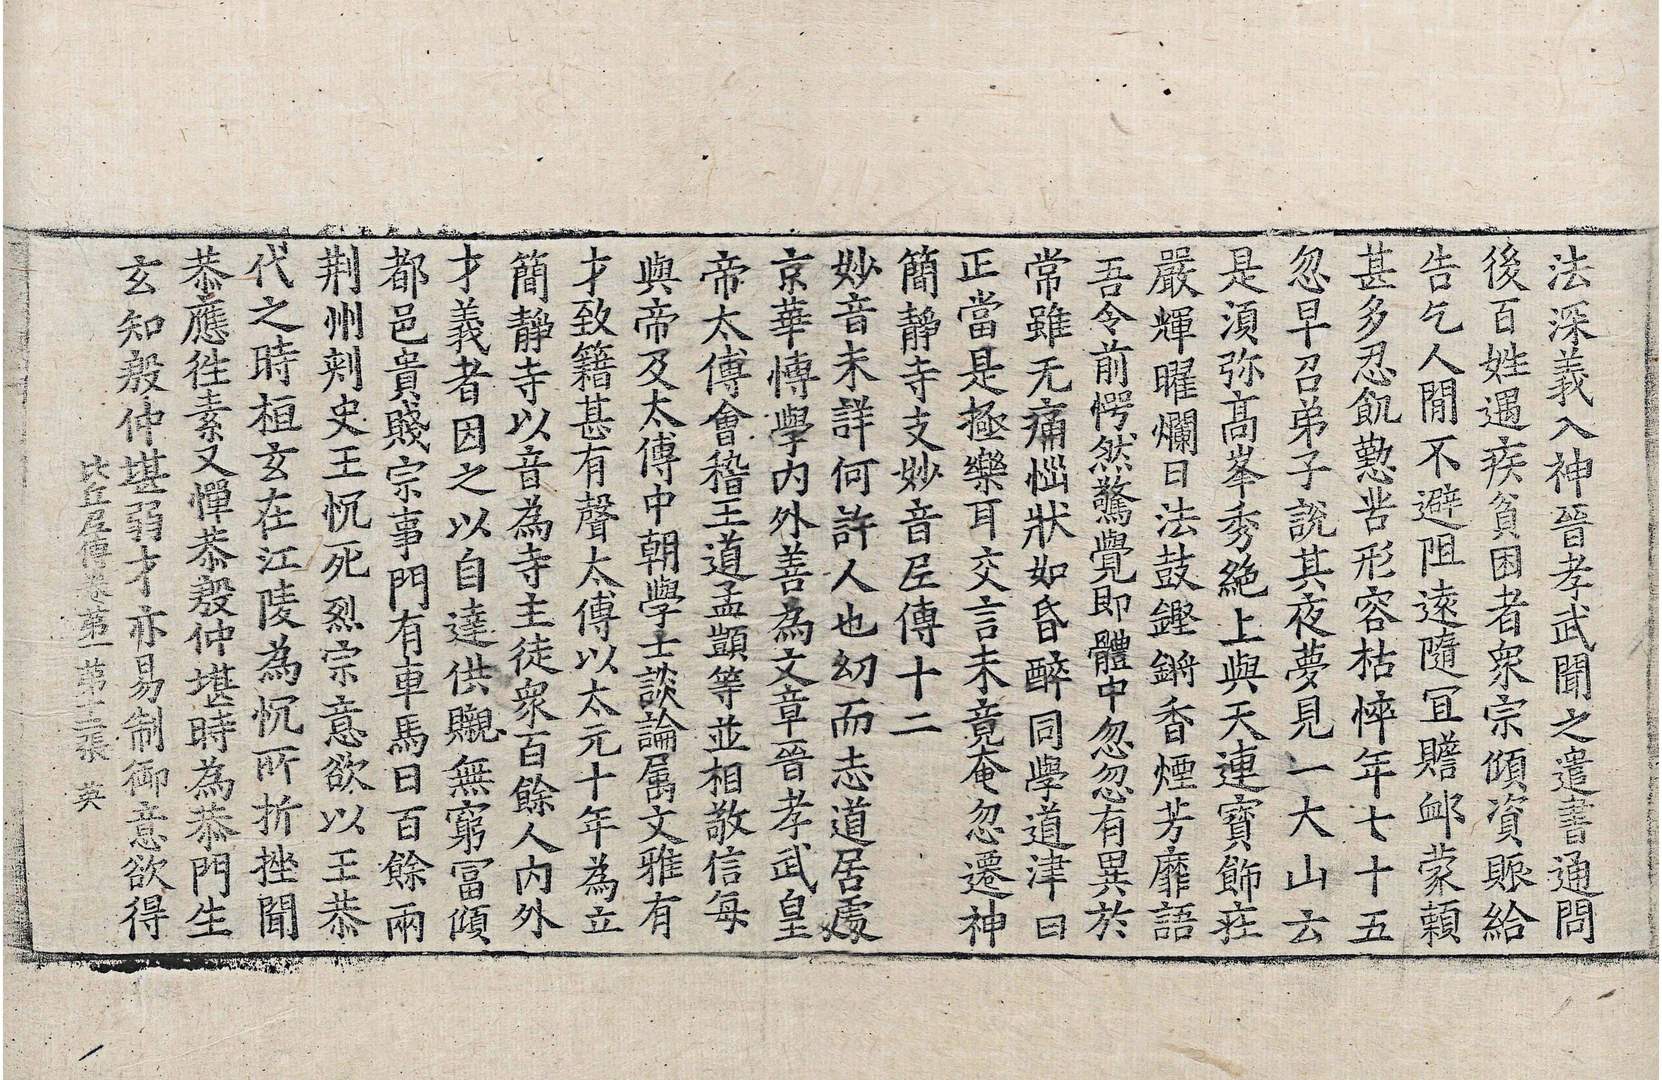 法深義入神晉孝武聞之遣書通問
後百姓遇疾貧困者衆宗傾資賑給
告乞人閒不避阻遠隨冝贍䘏蒙頼
甚多忍飢懃苦形容枯悴年七十五
忽早召弟子說其夜夢見一大山云
是湏弥髙峯秀絶上與天連寶飾莊
嚴輝曜爛日法鼓鏗鏘香煙芳靡語
吾令前愕然驚覺即體中忽忽有異於
常雖无痛惱狀如昏醉同學道津曰
正當是極樂耳交言未竟奄忽遷神
簡靜寺支妙音尼傳十二
妙音未詳何許人也幼而志道居處
京華愽學內外善為文章晉孝武皇
帝太傅會稽王道孟顗等並相敬信每
與帝及太傅中朝學士談論属文雅有
才致籍甚有聲太傅以太元十年為立
簡靜寺以音為寺主徒衆百餘人内外
才義者因之以自達供䞋無窮冨傾
都邑貴賤宗事門有車馬日百餘兩
荆州刾史王忱死烈宗意欲以王恭
代之時桓玄在江陵為忱所折挫聞
恭應徃素又憚恭殷仲堪時為恭門生
玄知殷仲堪弱才亦易制御意欲得
比丘尼傳卷第一 第十三張 英